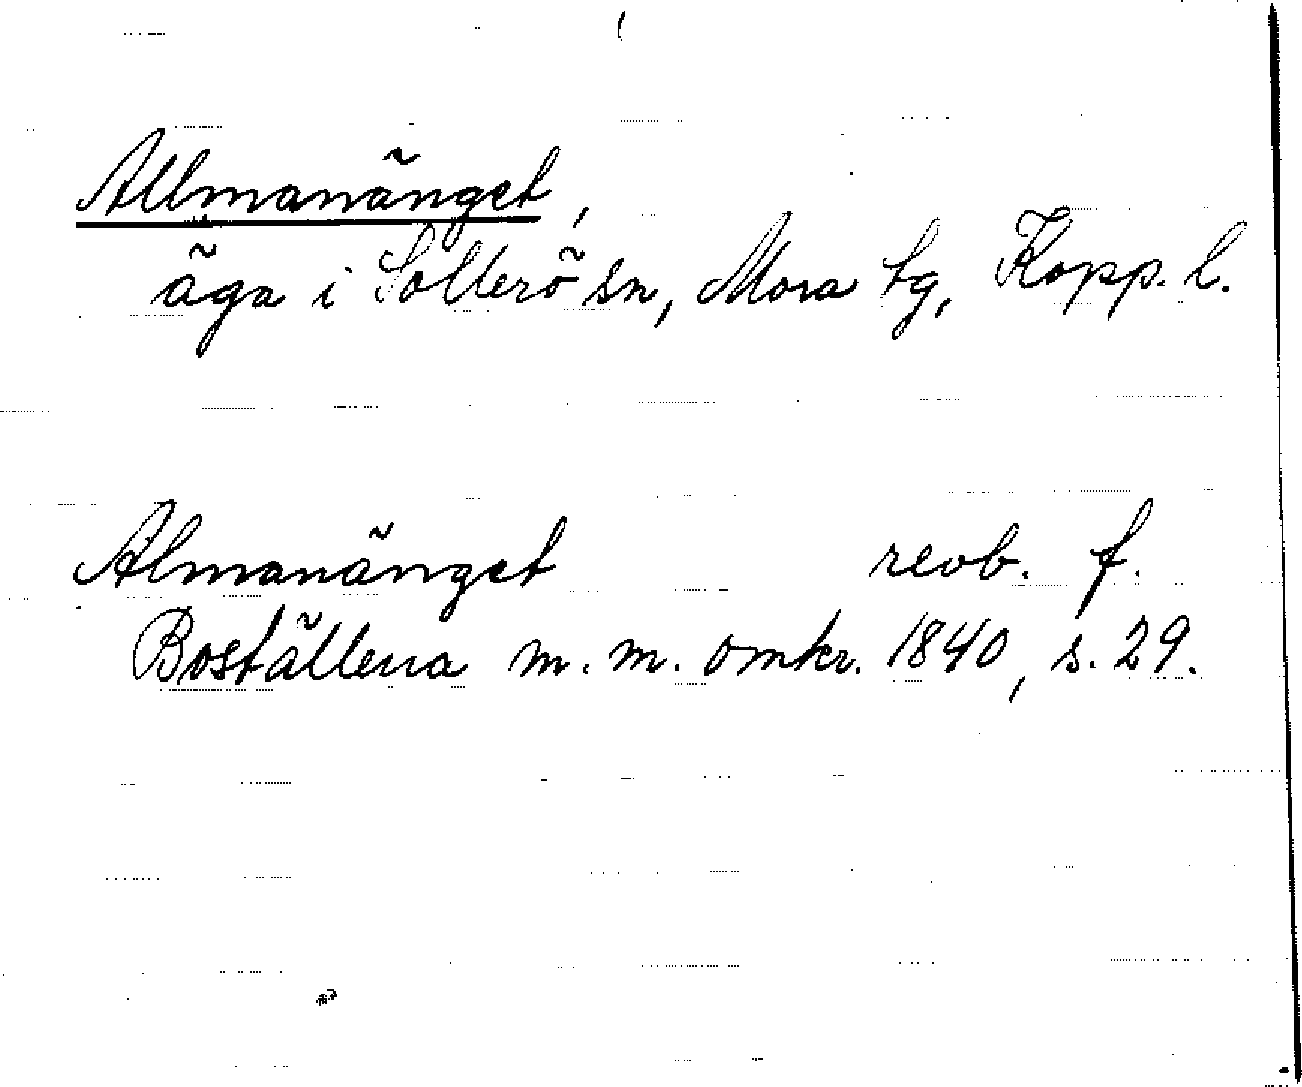 Allmanänget,
äga i Sollerö sn, Mora tg, Kopp. l.
Almanänget revb. f.
Boställena m. m. omkr. 1840, s. 29.